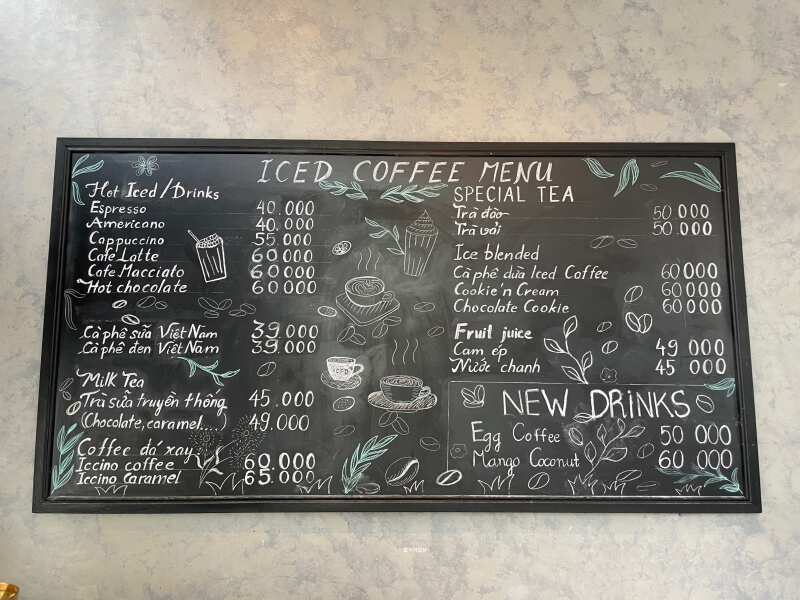 ICED COFFEE MENU
Hot Iced/Drinks
Espresso 40.000
Americano 40.000
Cappuccino 55.000
Cafe Latte 60000
Cafe Macciato 60000
Hot chocolate 60.000
Cà phê sữa Việt Nam 39.000
Cà phê đen Việt Nam 39.000
Milk Tea
Trà sữa truyền thống 45.000
(Chocolate, caramel....) 49.000
Coffee đá xay
Iccino coffee 60.000
Iccino Caramel 65.000
ICED
SPECIAL TEA
Trà đào 50 000
Trà vải 50.000
Ice blended
Cà phê dừa Iced Coffee 60000
Cookie'n Cream 60000
Chocolate Cookie 60000
Fruit juice
Cam ép 49 000
Nước chanh 45 000
NEW DRINKS
Egg Coffee 50 000
Mango Coconut 60 000